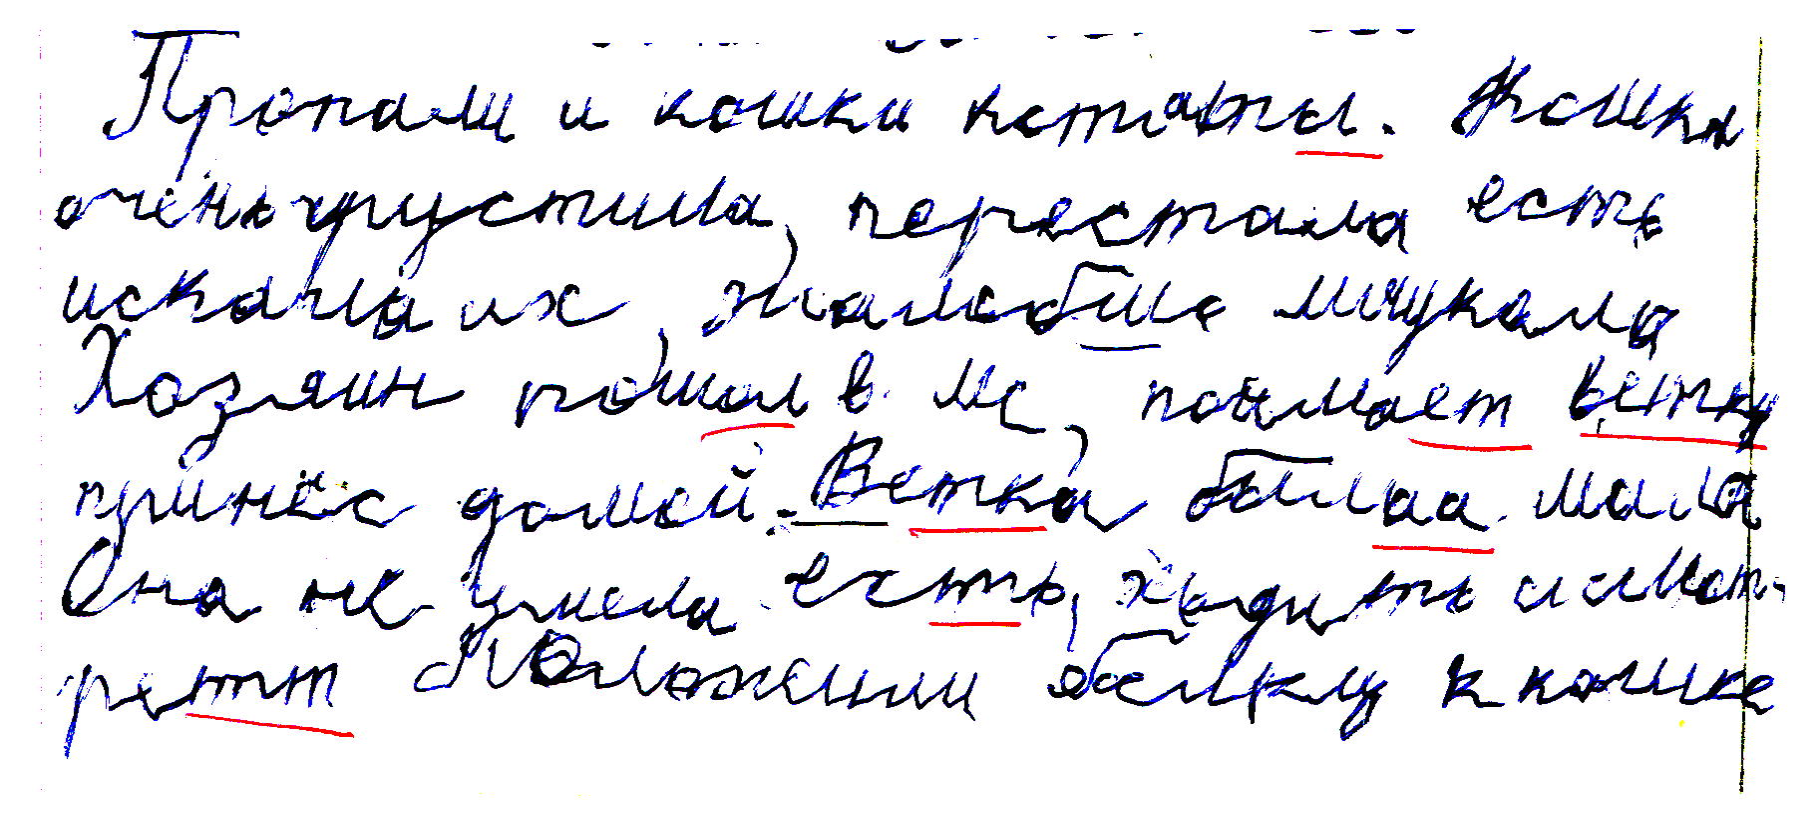 Пропали и кошки котяты. Кошка
очень грустила, перестала есть
искала их, жалобше мяукала
Хозяин пошол в лес, поимает ветку
принёс домой. Ветка былаа мала
Она не умела есть, ходить и смот-
ретт Положили обелку к кошке